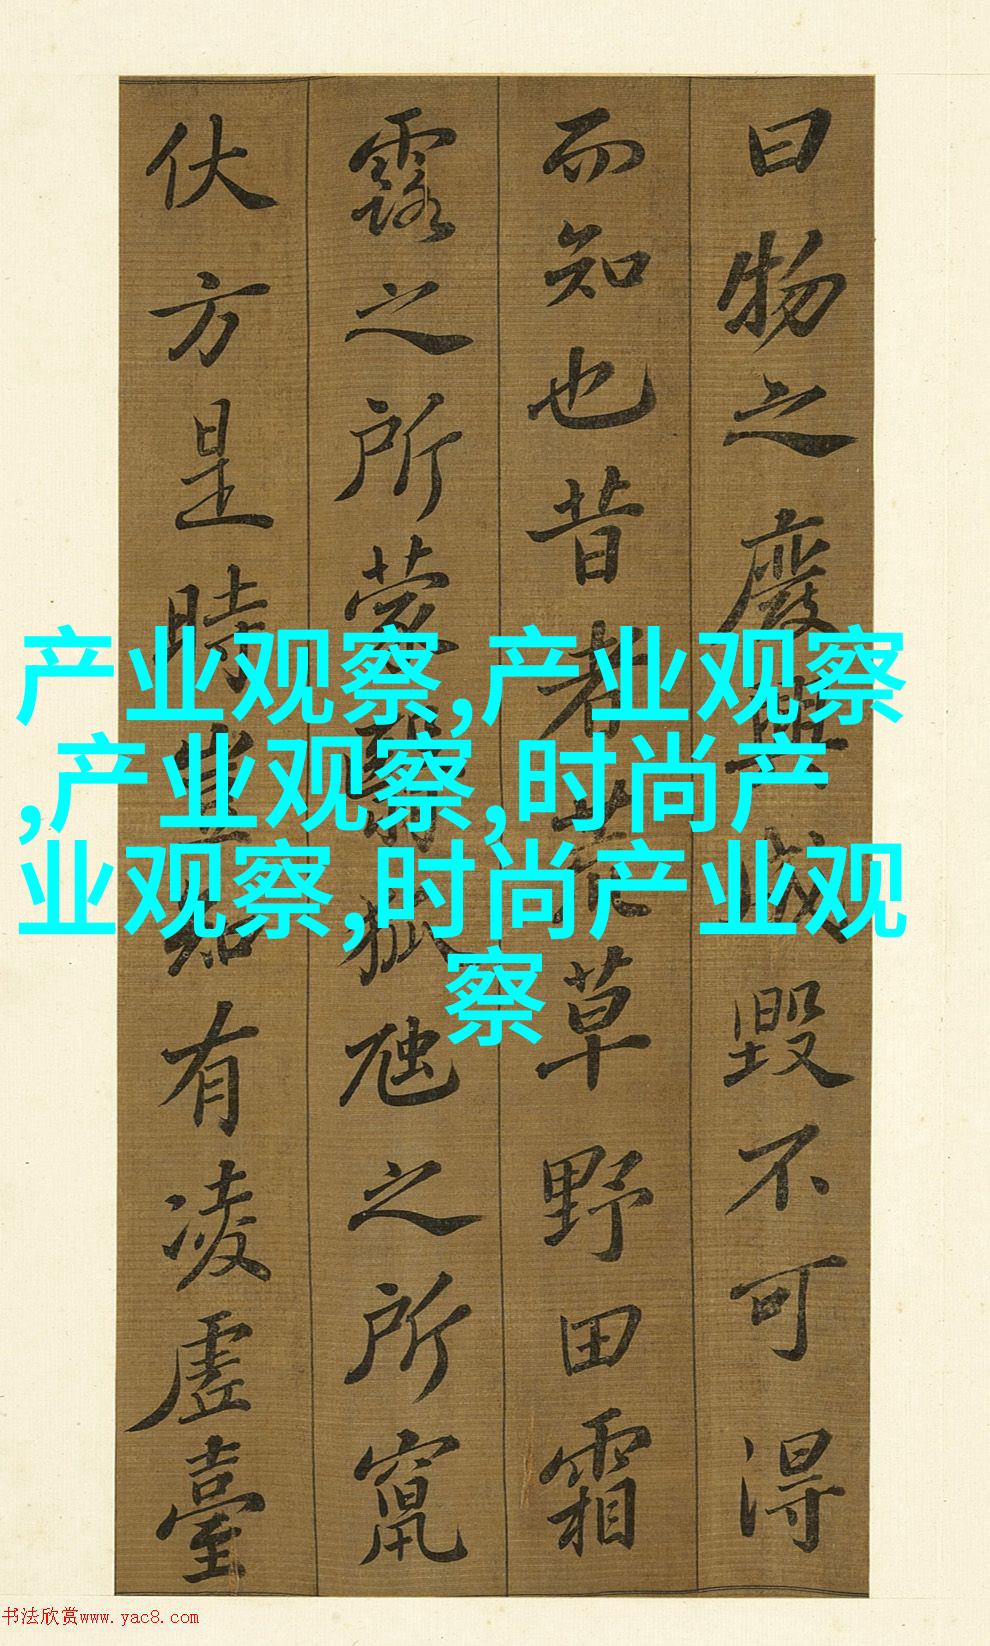 曰物之廢興成毀不可得
而知也昔者荒草野田霜
露之所蒙翳狐虺之所竄
伏方是時豈知有凌虛臺
产业观察,产业观察
,产业观察,时尚产
业观察,时尚产业观
察
书法欣赏www.yac8.com